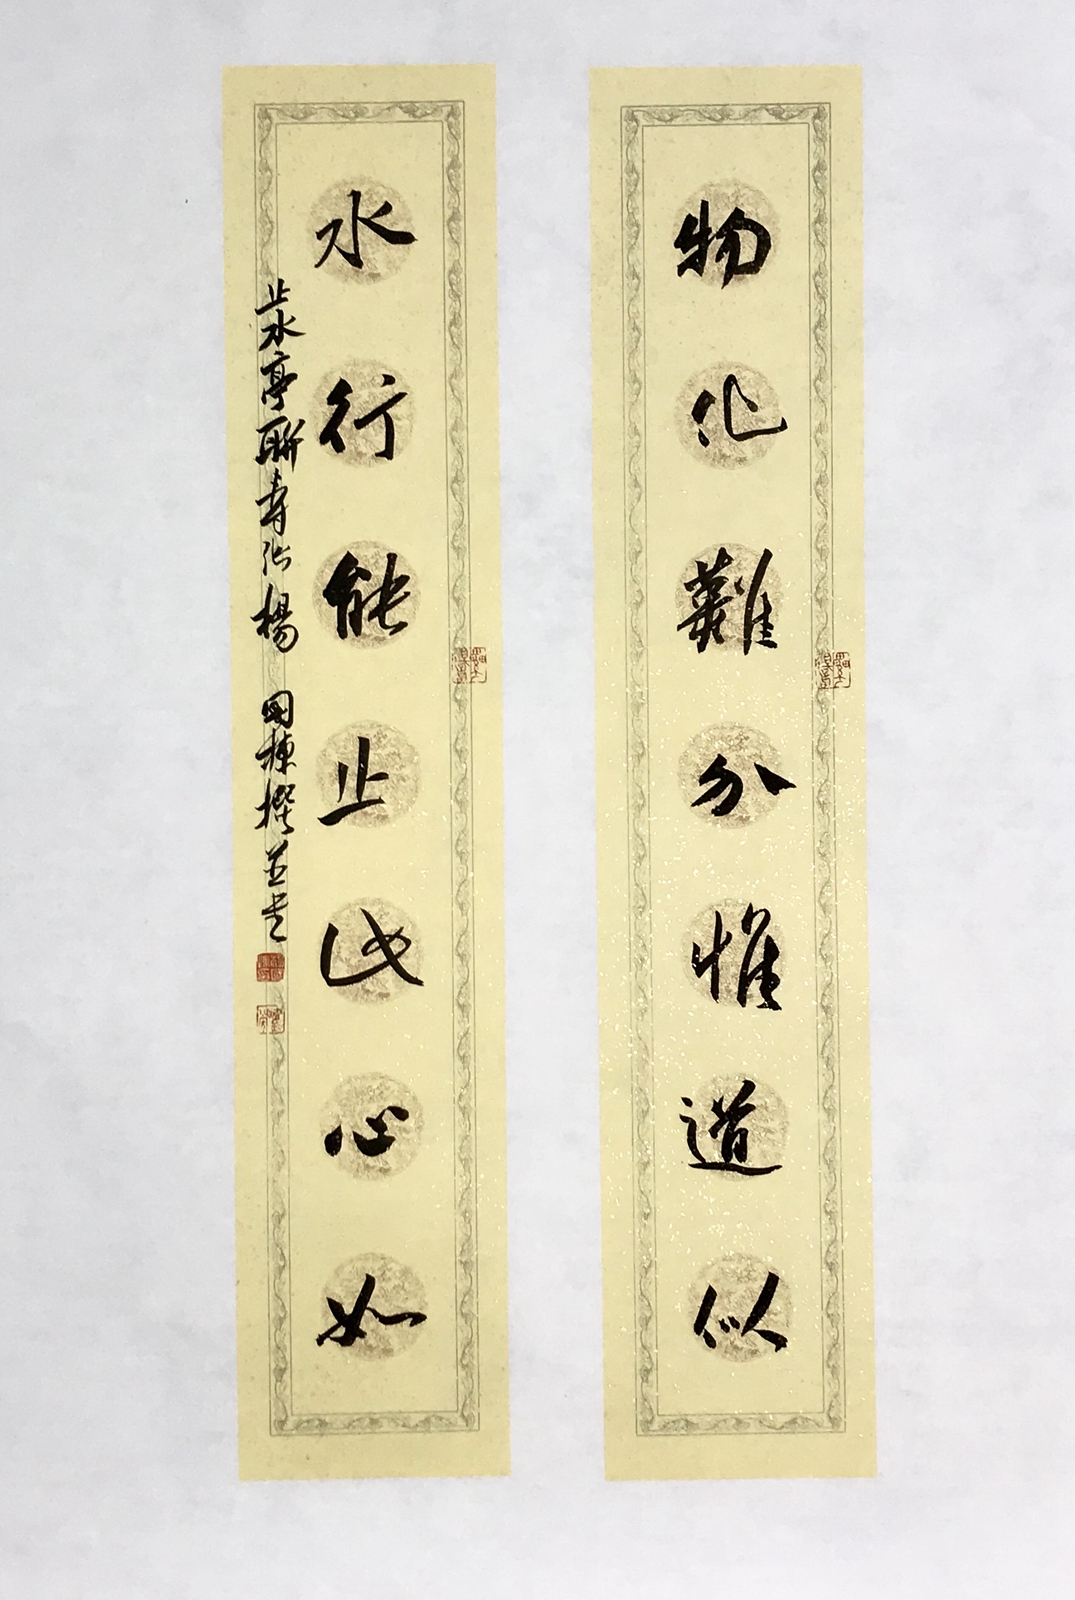 物化難分惟道似
水行能止此心如
止水亭聯 壽州楊國棟撰並書